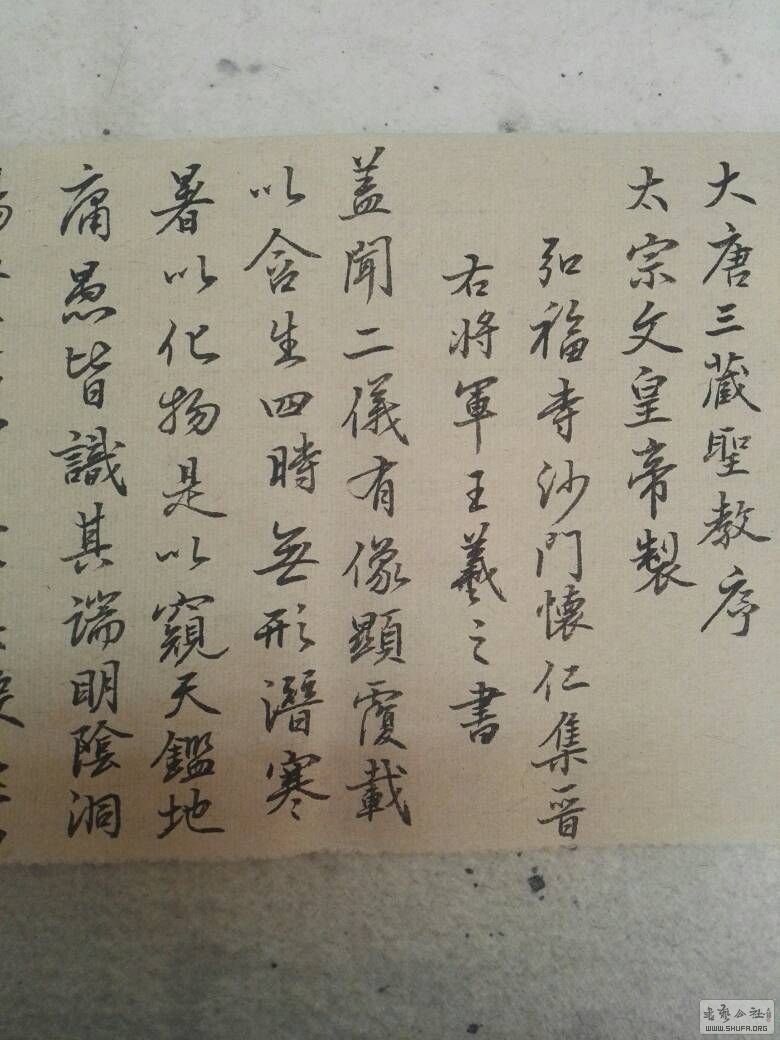 大唐三藏聖教序
太宗文皇帝製
弘福寺沙門懷仁集晉
右將軍王羲之書
蓋聞二儀有像顯覆載
以含生四時無形潛寒
暑以化物是以窺天鑑地
庸愚皆識其端明陰洞
書藝公社
WWW.SHUFA.ORG